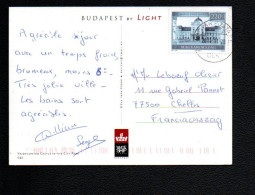 BUDAPEST BY LIGHT
Agréable séjour
avec un temps froid,
brumeux, moins 8°
Très jolie ville
Les bains sont
agréables.
MAGYARORSZÁG
M/Mme Leboeuf Olivier
11 rue Gabriel Ponnet
77500 Chelles
Franciaország